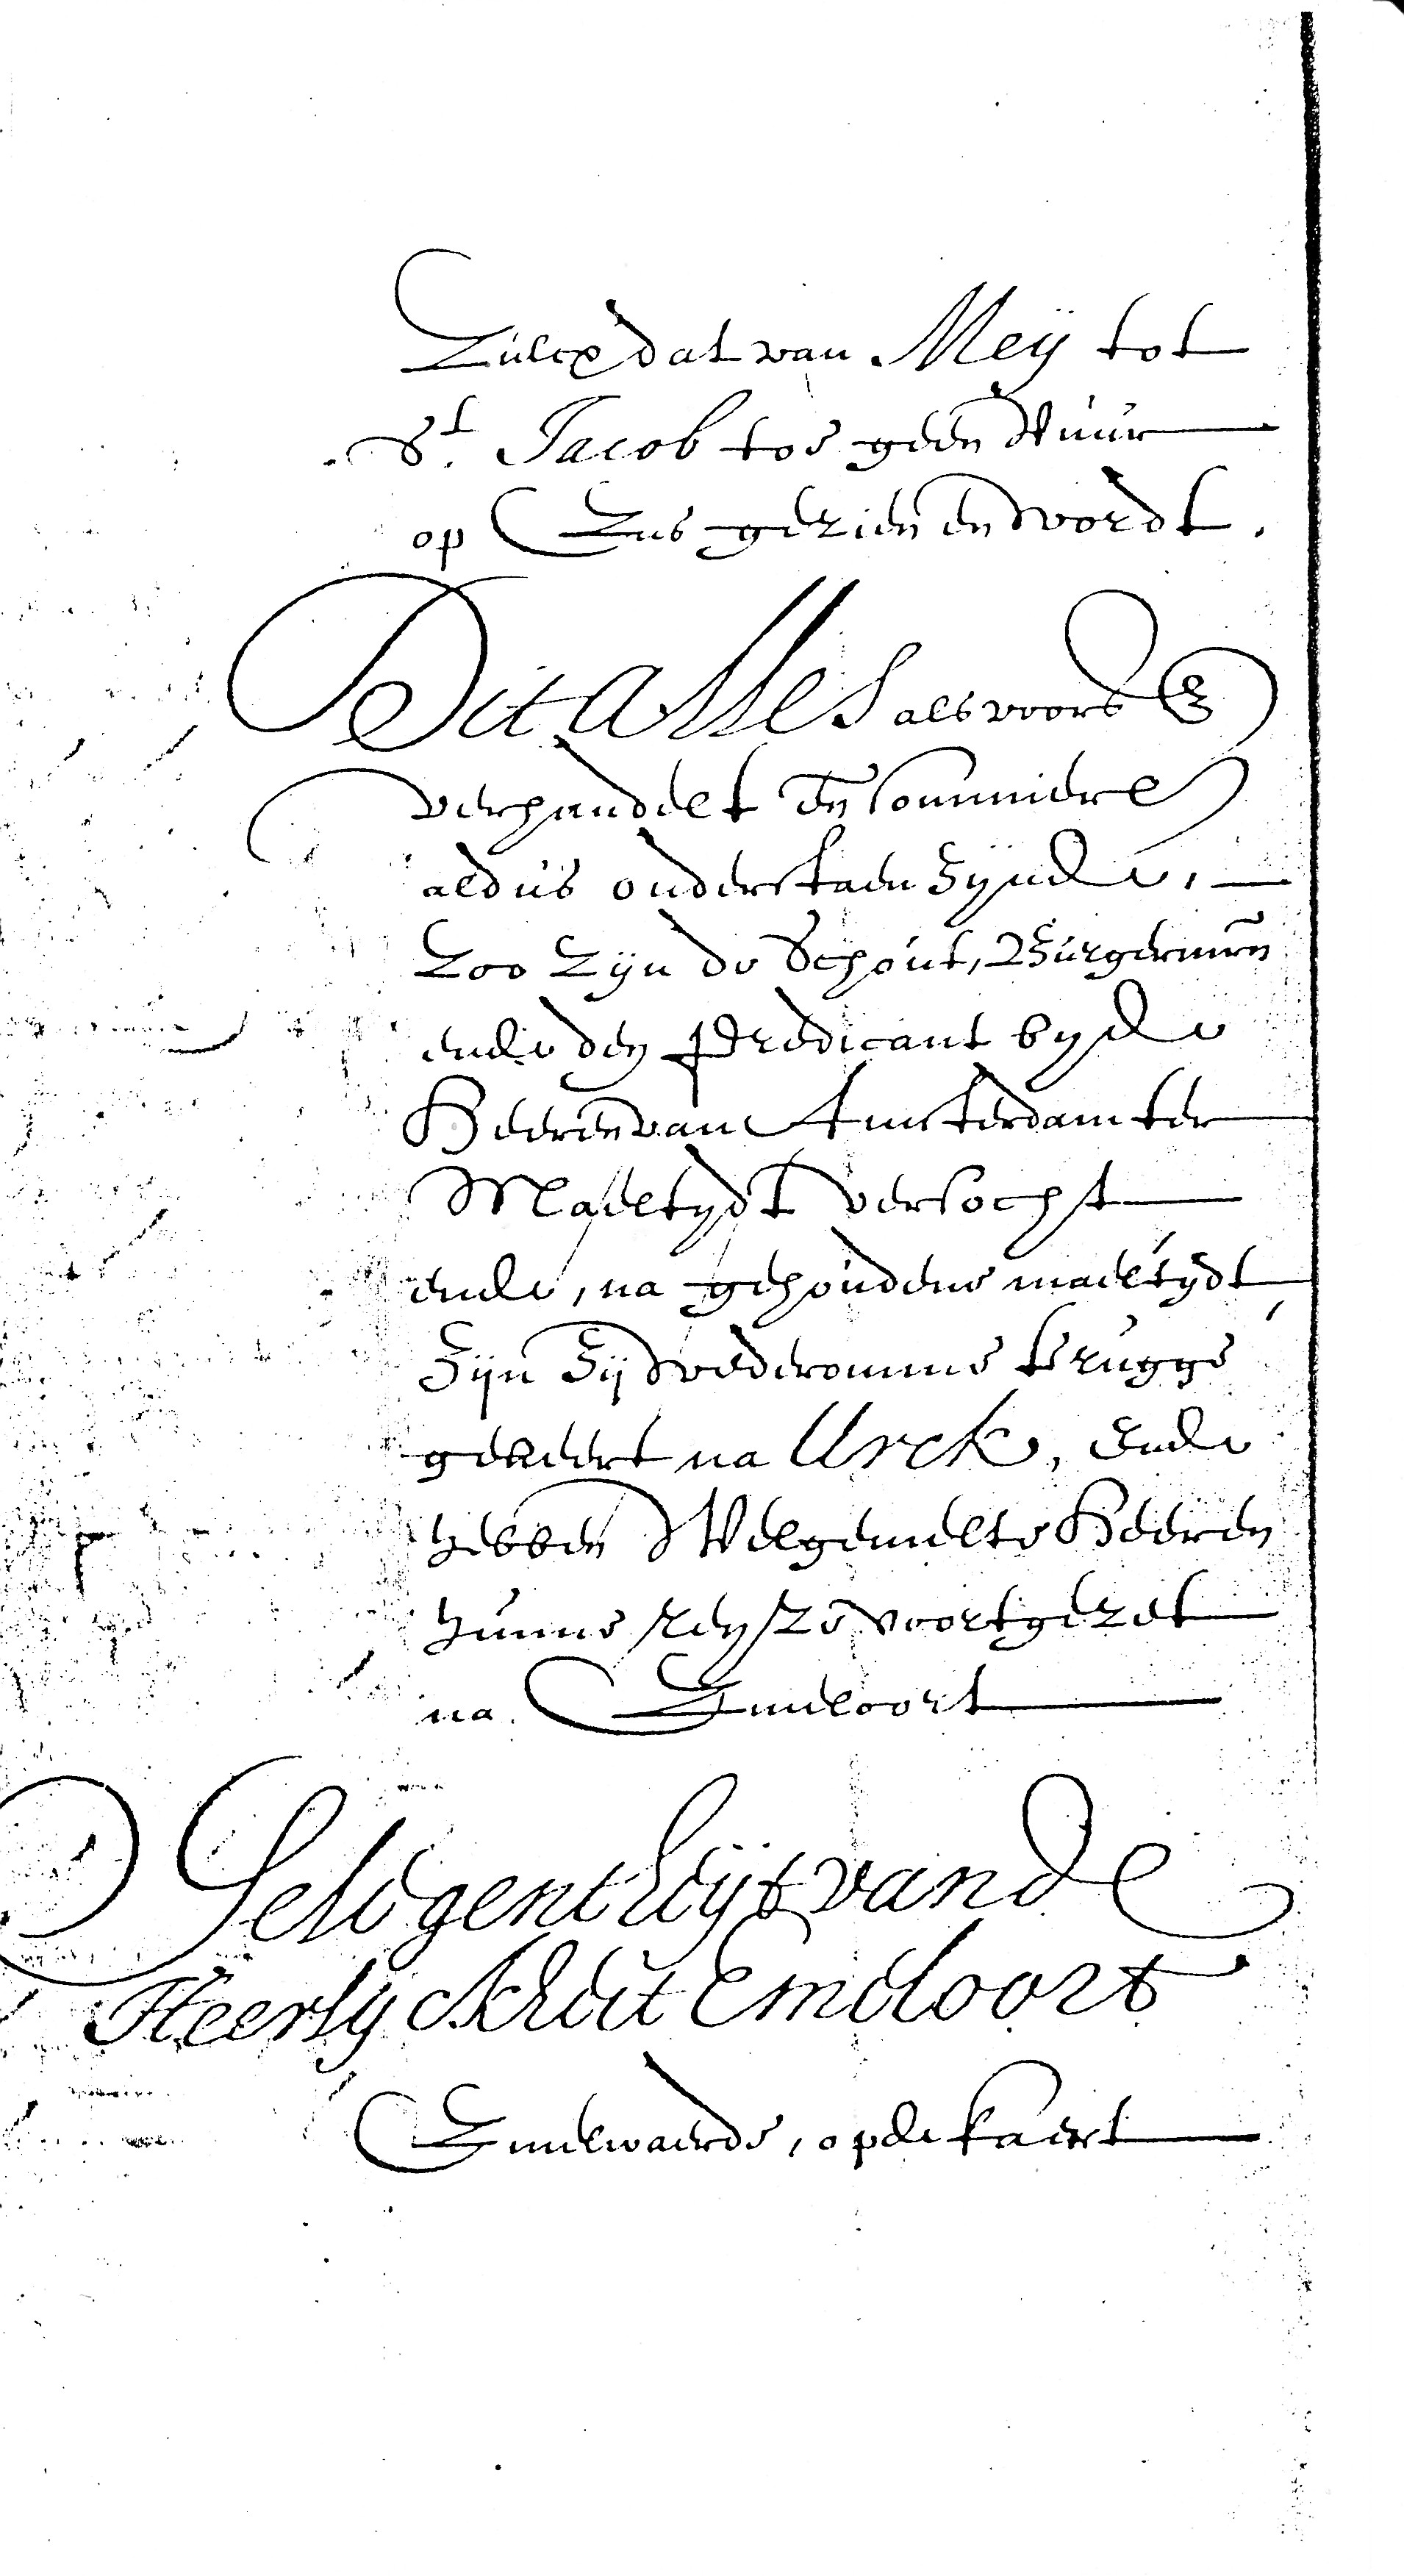 Zulcx dat van Meij tot
St. Jacob toe geen Vuur
op Ens gezien en wordt.
Dit alles als voors
verhandelt en
aldus onderstaen zijnde,
Zoo zijn de Schout, Burgermrn
ende den Predicant by de
Heeren van Amsterdam ter
Maeltydt versocht
ende, na gehoudene maeltydt
zijn zij wederomme terugge
gekeert na Urck, Ende
hebben Welgemelte Heeren
hunne reyse voortgezet
na Emeloort
Gelegentheijt van de
Heerlyckheit Emeloort
Emelwaerde, op de kaert